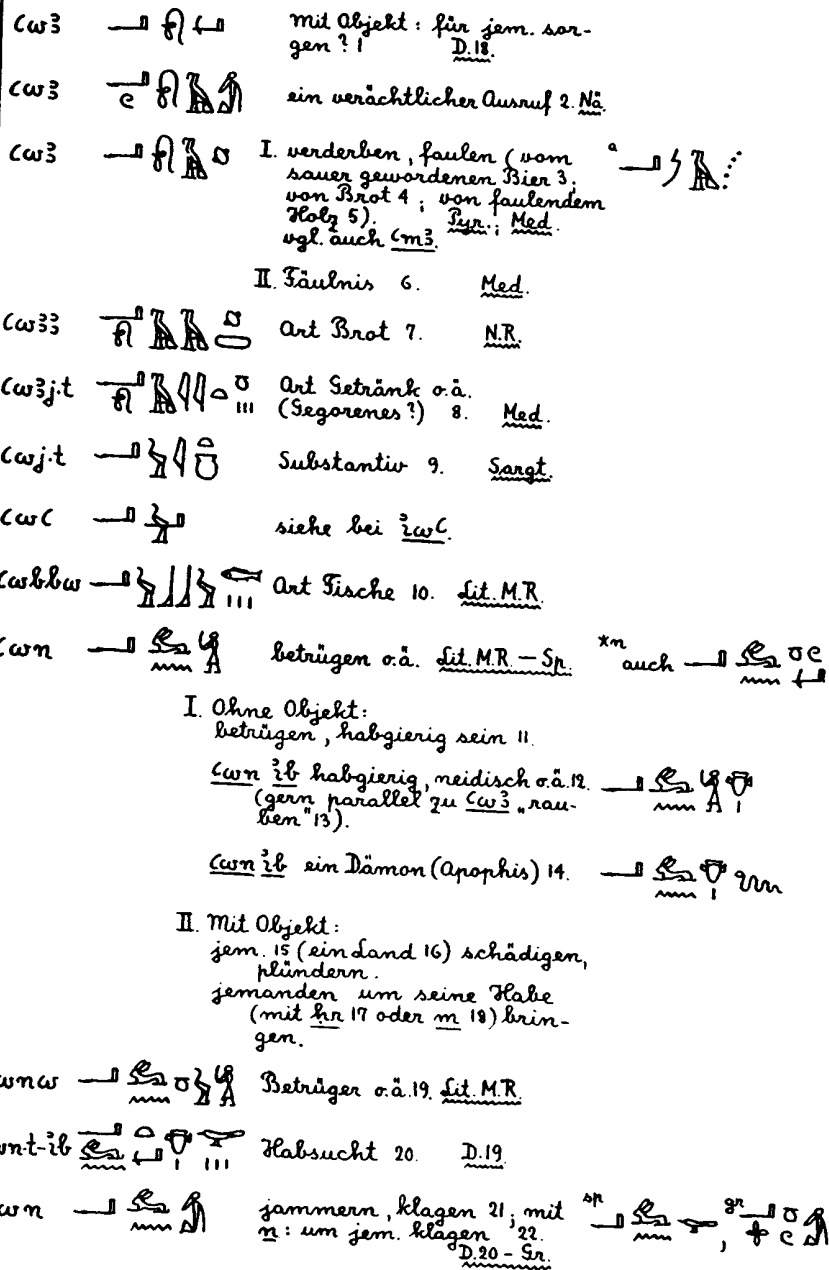 ꜥwꜣ mit Objekt: für jem. sor-
gen? 1 D.18.
ꜥwꜣ ein verächtlicher Ausruf 2. Nä.
ꜥwꜣ I. verderben, faulen (vom a
sauer gewordenen Bier 3;
von Brot 4; von faulendem
Holz 5). Pyr.; Med.
vgl. auch ꜥmꜣ.
II. Fäulnis 6. Med.
ꜥwꜣꜣ Art Brot 7. N.R.
ꜥwꜣj.t Art Getränk o.ä.
(Gegorenes?) 8. Med.
ꜥwj.t Substantiv 9. Sargt.
ꜥwꜥ siehe bei ꞽwꜥ.
ꜥwbbw Art Fische 10. Lit. M.R.
ꜥwn betrügen o.ä. Lit. M.R. – Sp. *n auch
I. Ohne Objekt:
betrügen, habgierig sein 11.
ꜥwn ꞽb habgierig, neidisch o.ä. 12.
(gern parallel zu ꜥwꜣ „rau-
ben" 13).
ꜥwn ꞽb ein Dämon (Apophis) 14.
II. Mit Objekt:
jem. 15 (ein Land 16) schädigen,
plündern.
jemanden um seine Habe
(mit ḥr 17 oder m 18) brin-
gen.
wnw Betrüger o.ä. 19. Lit. M.R.
wn.t-ꞽb Habsucht 20. D.19
wn jammern, klagen 21; mit sp , gr
n: um jem. klagen 22.
D.20 – Gr.